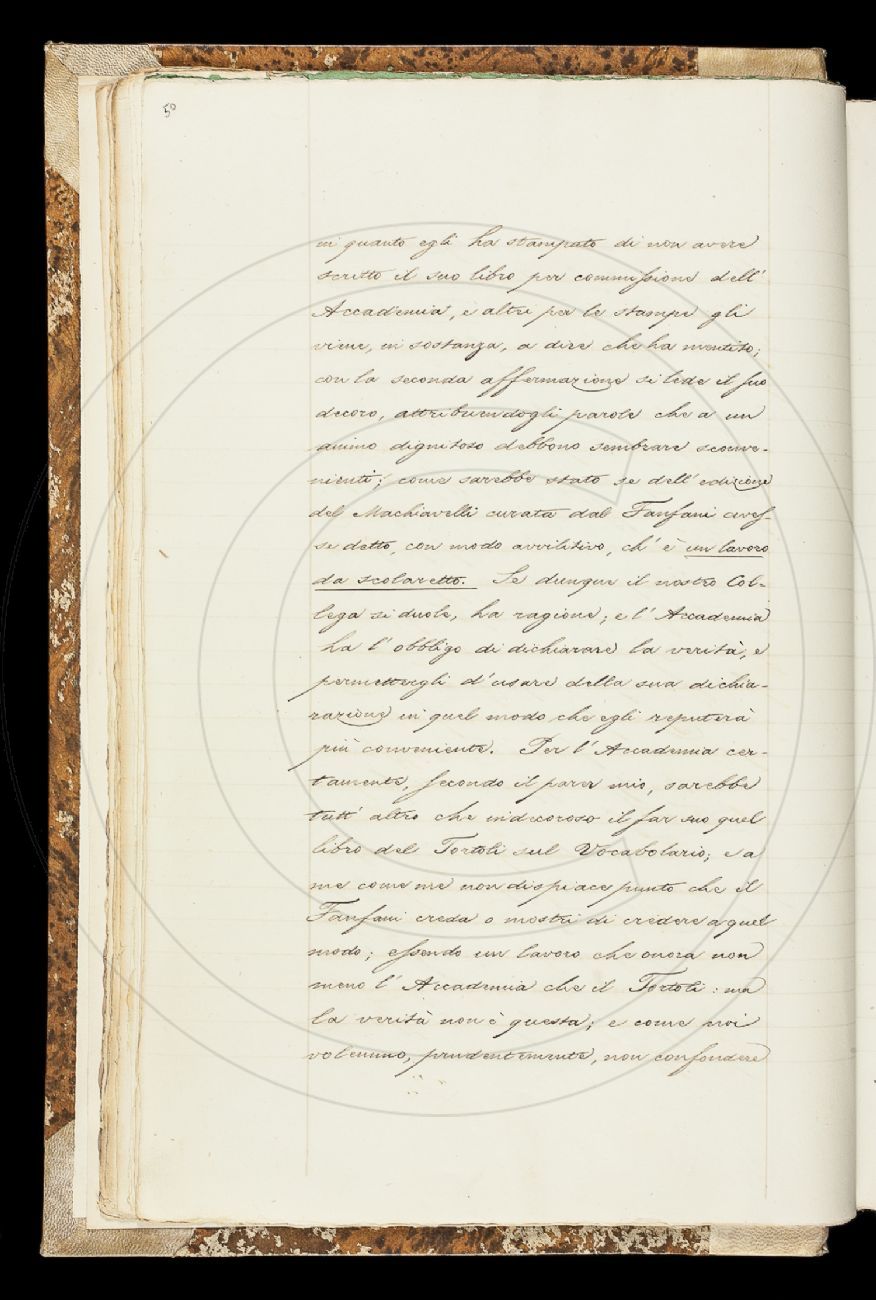 50
in quanto egli ha stampato di non avere
scritto il suo libro per commissione dell'
Accademia, e altri per le stampe gli
viene, in sostanza, a dire che ha mentito;
con la seconda affermazione si lede il suo
decoro, attribuendogli parole che a un
animo dignitoso debbono sembrare sconve-
nienti; come sarebbe stato se dell' edizione
del Machiavelli curata dal Fanfani aves-
se detto, con modo avvilitivo, ch' è un lavoro
da scolaretto. Se dunque il nostro Col-
lega si duole, ha ragione; e l' Accademia
ha l' obbligo di dichiarare la verità, e
permettergli d' usare della sua dichia-
razione in quel modo che egli reputerà
più conveniente. Per l' Accademia cer-
tamente, secondo il parer mio, sarebbe
tutt' altro che indecoroso il far suo quel
libro del Tortoli sul Vocabolario; e a
me come me non dispiace punto che il
Fanfani creda o mostri di credere a quel
modo; essendo un lavoro che onora non
meno l' Accademia che il Tortoli: ma
la verità non è questa; e come noi
volemmo, prudentemente, non confondere